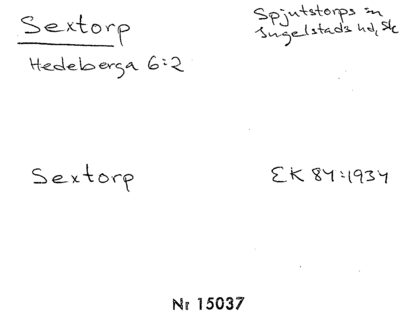 Sextorp
Spjutstorps sn
Ingelstads hd, Sk
Hedeberga 6:2
Sextorp
EK 84:1934
Nr 15037